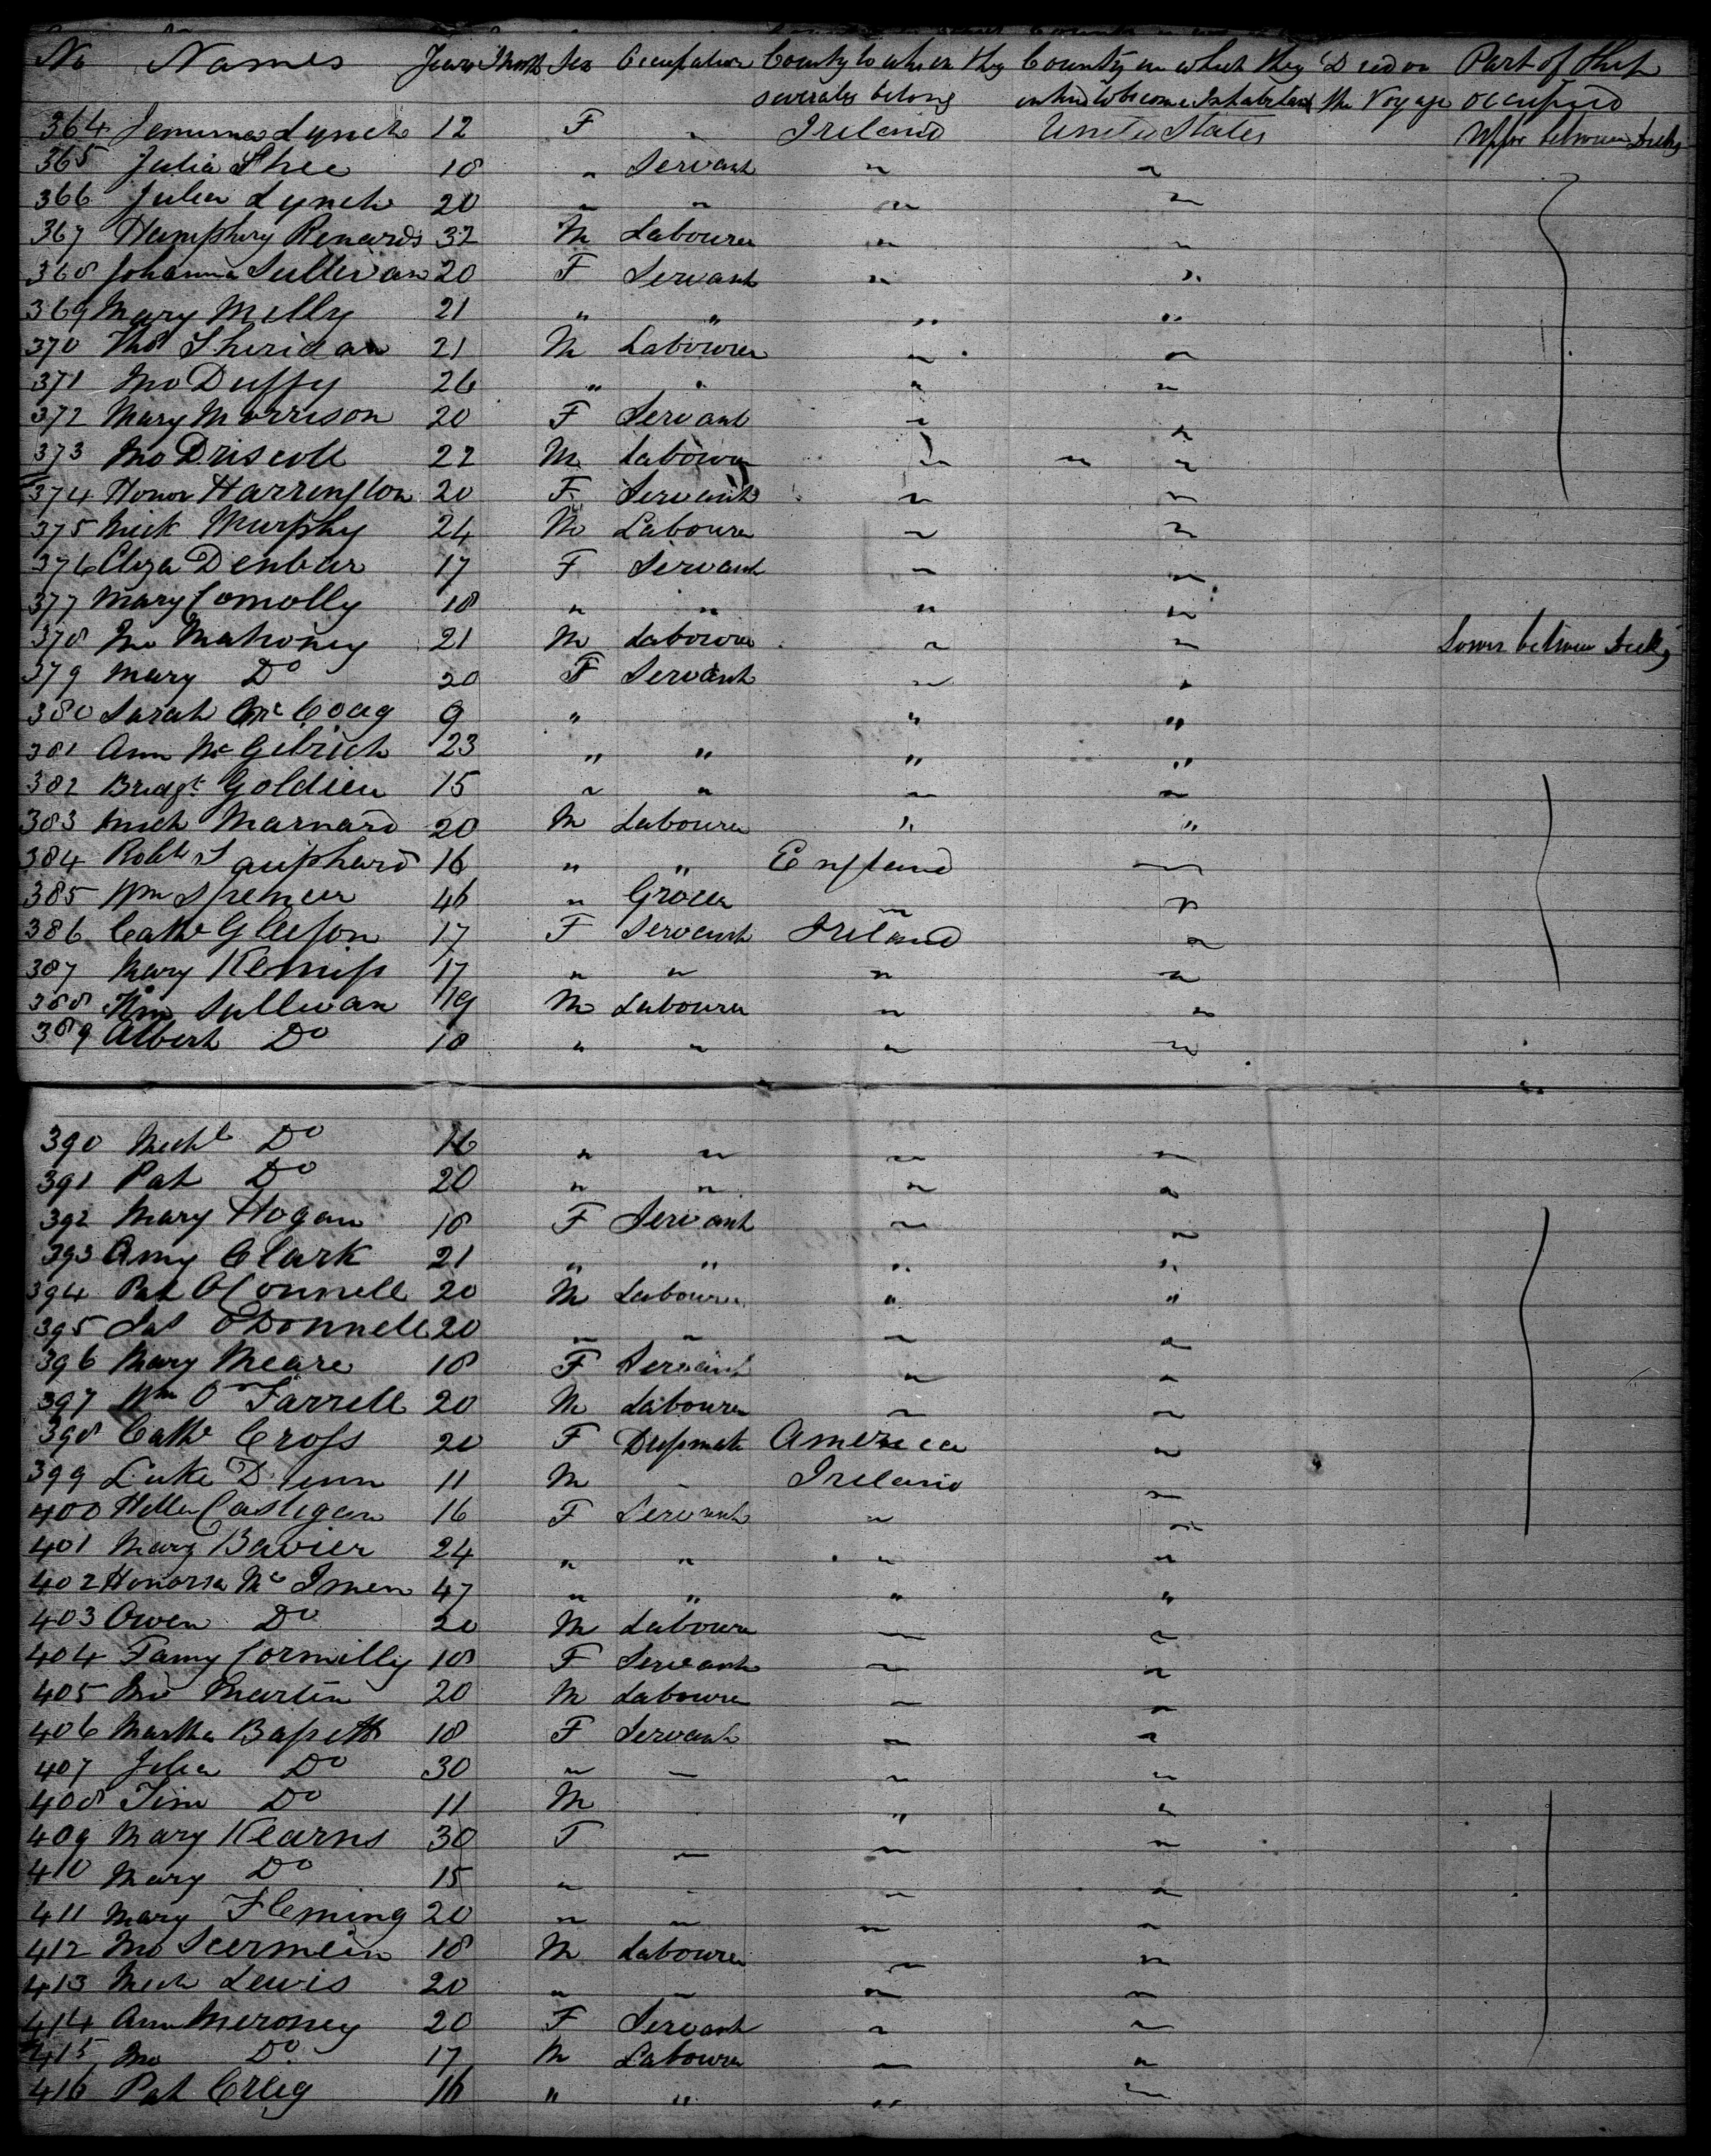 No Names Years Months Sex Occupation County to which they County in which they Died on Part of Ship
severally belong intend to become Inhabitants the Voyage occupied
364 Jemima Lynch 12 F " Ireland United States Upper between Decks
365 Julia Shee 18 " Servant " "
366 Julia Lynch 20 " " " "
367 Humphery Renards 32 M Labourer " "
368 Johanna Sullivan 20 F Servant " "
369 Mary Melly 21 " " " "
370 Thos Sheridan 21 M Labourer " "
371 Jno Duffy 26 " " " "
372 Mary Morrison 20 F Servant " "
373 Jno Driscoll 22 M Labourer " " "
374 Honor Harrington 20 F Servant " "
375 Mick Murphy 24 M Labourer " "
376 Eliza Denbar 17 F Servant " "
377 Mary Conolly 18 " " " "
378 Jno Mahoney 21 M Labourer " " Lower between Decks
379 Mary Do 20 F Servant " "
380 Sarah Mc Coag 9 " " "
381 Ann Mc Gilrich 23 " " " "
382 Bridgt Goldien 15 " " " "
383 Mich Marnard 20 M Labourer " "
384 Robt 16 " " England "
385 Wm Spencer 46 " Grocer " "
386 Cathe Gleeson 17 F Servant Ireland "
387 Mary 17 " " " "
388 Tim Sullivan 19 M Labourer " "
389 Albert Do 18 " " " "
390 Michl Do 16 " " " "
391 Pat Do 20 " " " "
392 Mary Hogan 18 F Servant " "
393 Amy Clark 21 " " " "
394 Pat OConnell 20 M Labourer " "
395 Jas ODonnell 20 " " " "
396 Mary Meare 18 F Servant " "
397 Wm O Farrell 20 M Labourer " "
398 Cathe Cross 20 F America "
399 Luke Dunn 11 M " Ireland "
400 Hellen Castigan 16 F Servant " "
401 Mary Bavier 24 " " " "
402 Honorra Mc Imen 47 " " " "
403 Owen Do 20 M Labourer " "
404 Fanny Cormilly 18 F Servant " "
405 Jno Martin 20 M Labourer " "
406 Martha Bassett 18 F Servant " "
407 Julia Do 30 " " " "
408 Tim Do 11 M " "
409 Mary Kearns 30 F " " "
410 Mary Do 15 " " " "
411 Mary Fleming 20 " " " "
412 Jno Scermein 18 M Labourer " "
413 Mich Lewis 20 " " " "
414 Ann Meroney 20 F Servant " "
415 Jno Do 17 M Labourer " "
416 Pat Creig 16 " " " "